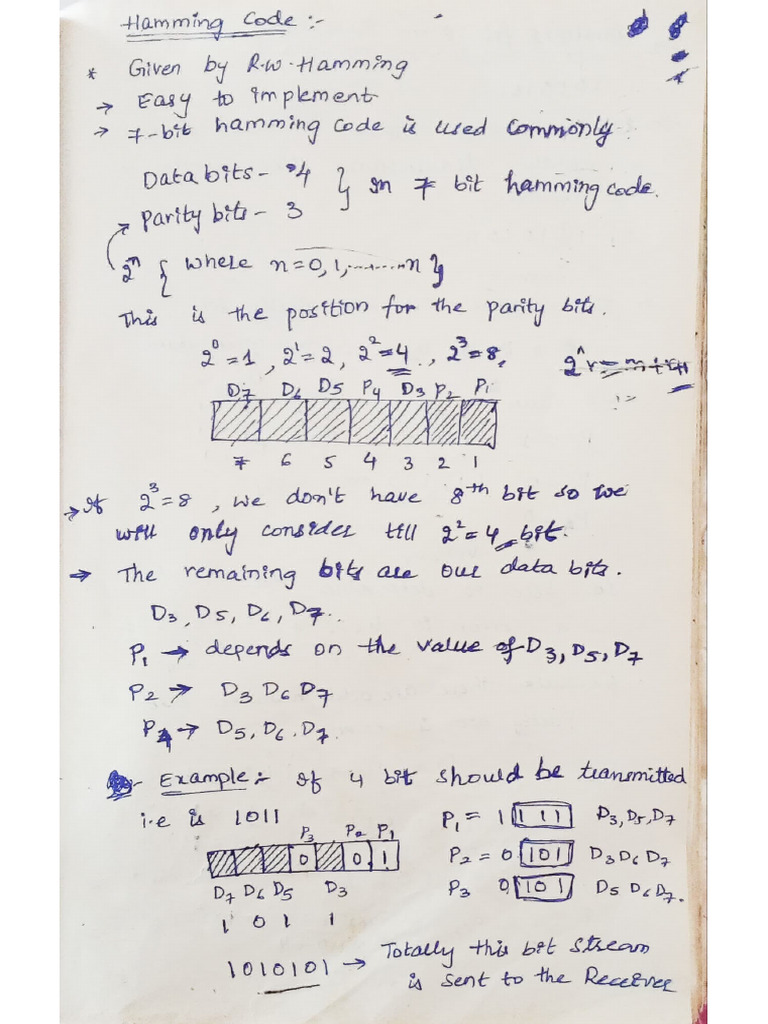 Hamming Code :-
* Given by R.W. Hamming
→ Easy to implement
→ 7-bit hamming code is used commonly.
Data bits - 4
Parity bits - 3 } In 7 bit hamming code.
2^n { where n=0,1,........n }
This is the position for the parity bits.
2^0=1, 2^1=2, 2^2=4, 2^3=8,
D7 D6 D5 P4 D3 P2 P1
7 6 5 4 3 2 1
→ If 2^3=8, we don't have 8th bit so we
will only consider till 2^2=4 bit.
→ The remaining bits are our data bits.
D3, D5, D6, D7.
P1 → depends on the value of D3, D5, D7
P2 → D3 D6 D7
P4 → D5, D6, D7.
Example :- If 4 bit should be transmitted
i.e is 1011
P1 = 1 111 D3, D5, D7
P3 P2 P1
0 0 1
P2 = 0 101 D3 D6 D7
D7 D6 D5 D3
P3 0 101 D5 D6 D7.
1 0 1 1
1010101 → Totally this bit stream
is sent to the Receiver